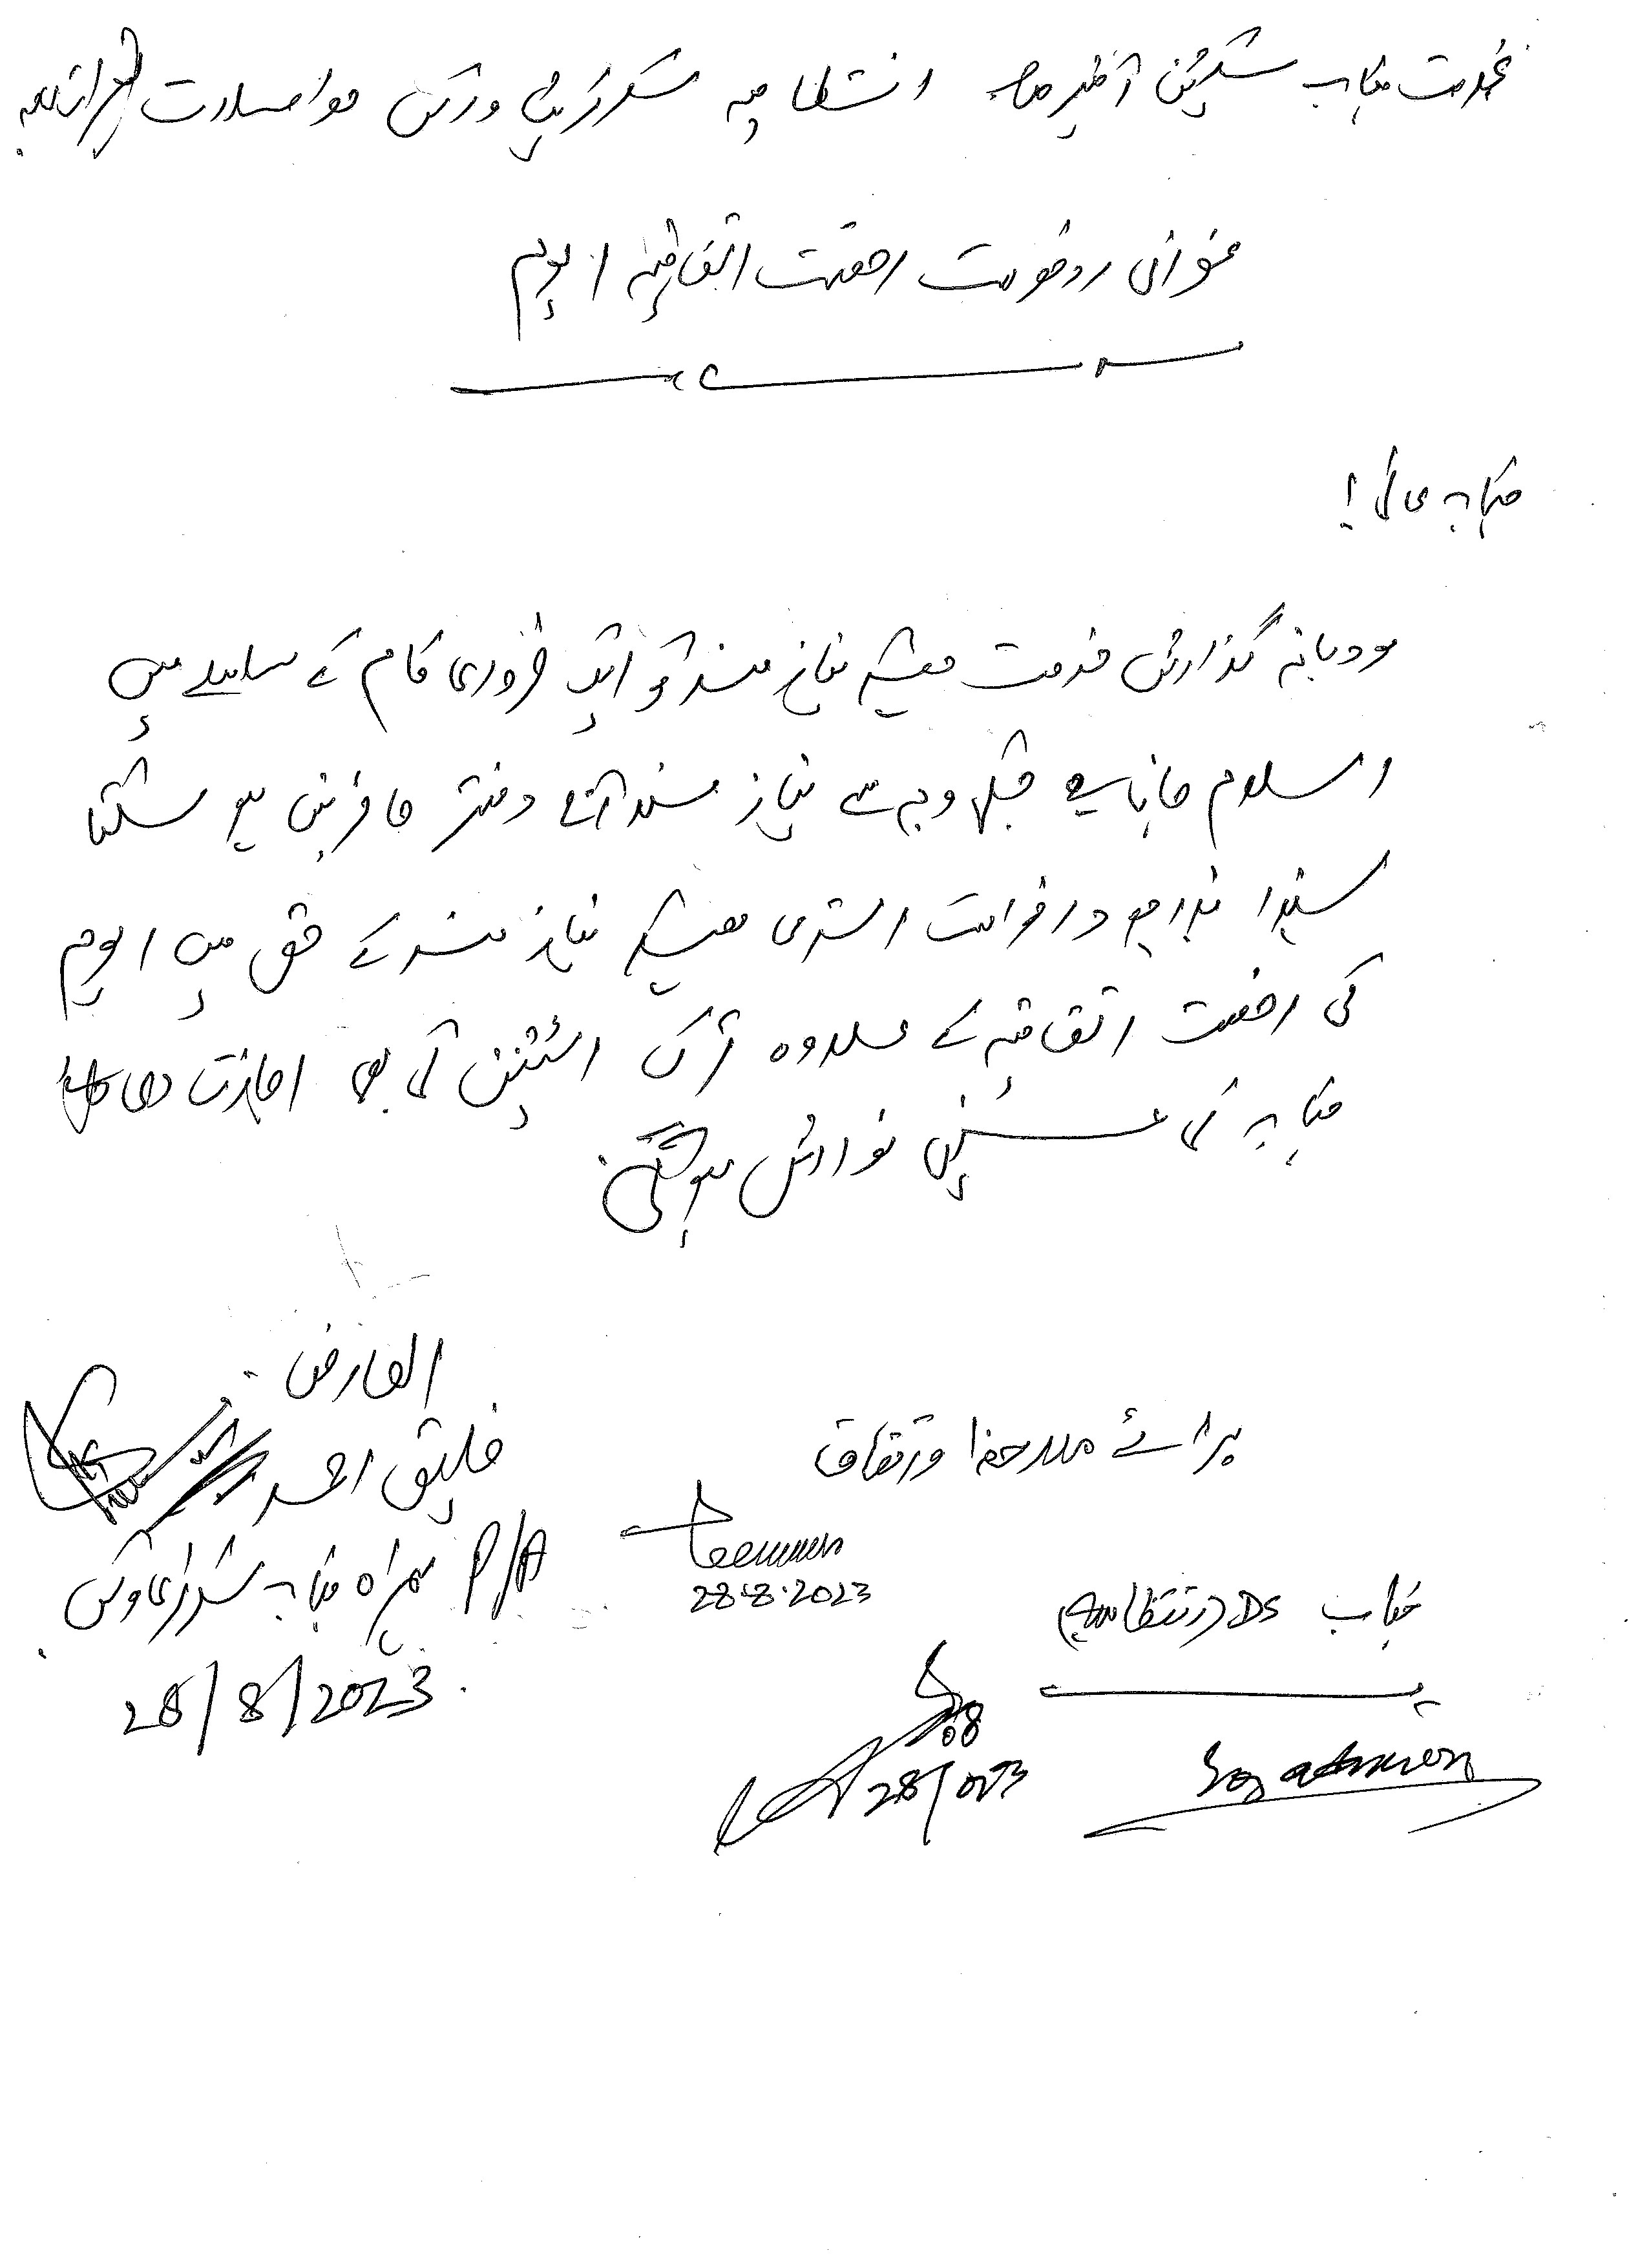 بخدمت جناب سیکشن آفیسر صاحب انتظامیہ سیکرٹریٹ ورکس مواصلات
عنوان درخواست رخصت اتفاقیہ 1 یوم
جناب عالی!
مودبانہ گذارش خدمت ہیکہ نیاز مند کو ایک ضروری کام کے سلسلے میں
اسلام جانا ہے جسکی وجہ سے نیاز مند آج دفتر حاضر نہیں ہو سکتا
لہذا بذریعہ درخواست استدعا ہیکہ نیاز مند کے حق میں 1 یوم
کی رخصت اتفاقیہ کے علاوہ ترک اسٹیشن کی بھی اجازت دی جائے
جناب کی عین نوازش ہوگی
العارض
خلیق احمد
P/A ہمراہ جناب سیکرٹری ورکس
28/8/2023
برائے ملاحظہ و اتفاق
28.8.2023
جناب DS (انتظامیہ)
28/
So admin